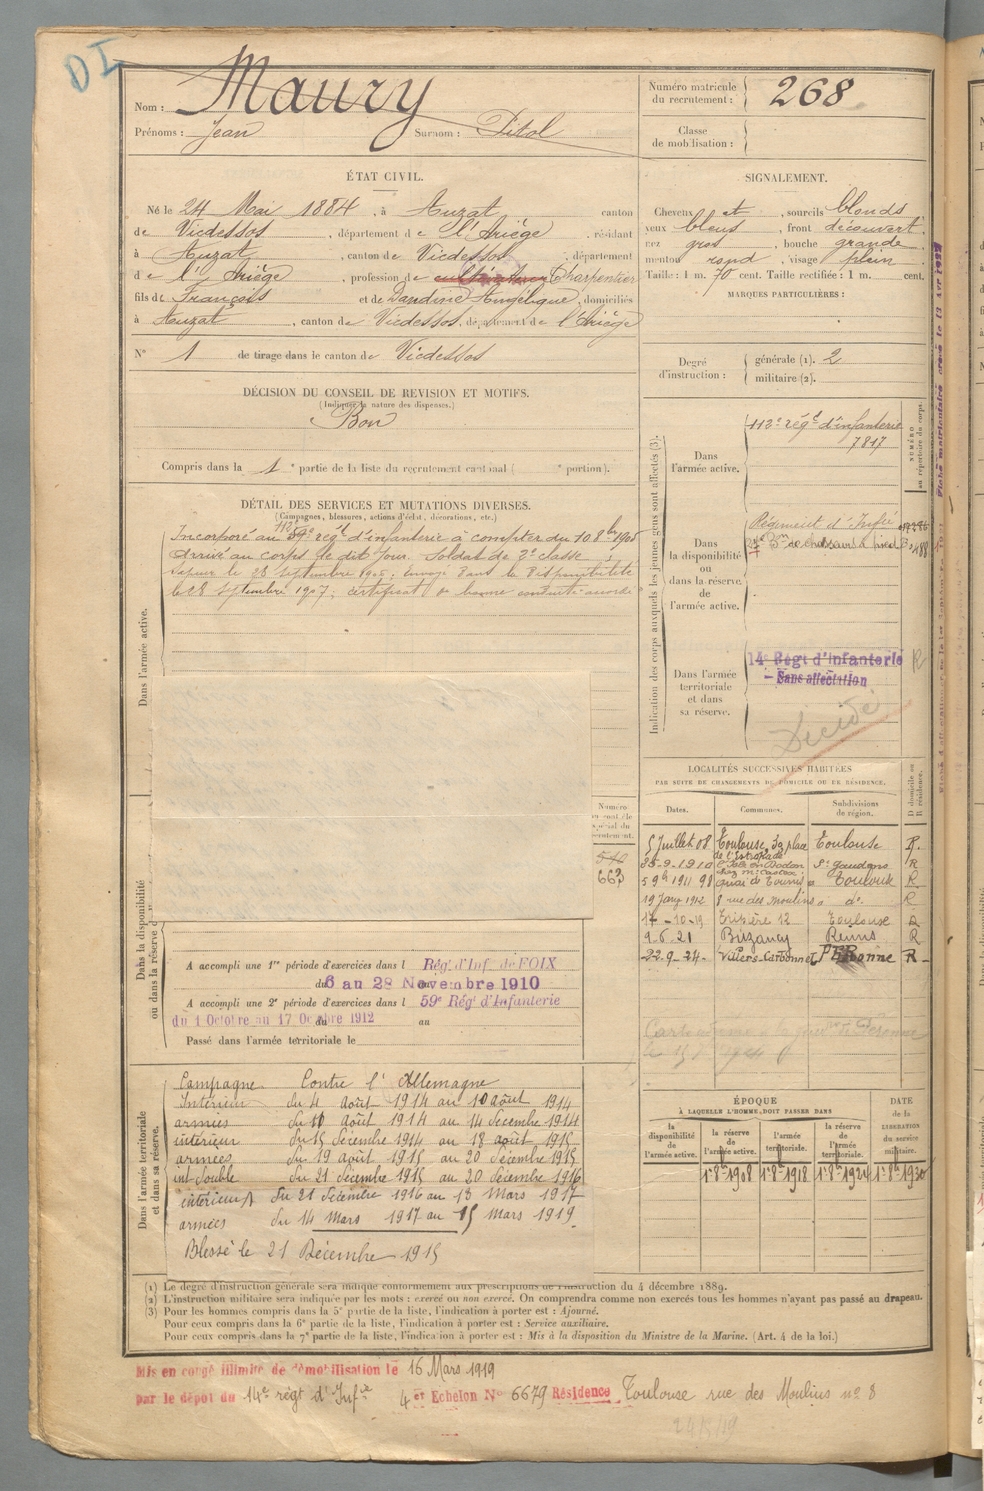 D I
Nom : Maury
Prénoms : Jean Surnom : Pitol
Numéro matricule du recrutement : 268
Classe de mobilisation :
ÉTAT CIVIL.
Né le 24 Mai 1884, à Auzat canton
de Vicdessos, département de l'Ariège, résidant
à Auzat, canton de Vicdessos, département
de l'Ariège, profession de cultivateur Charpentier
fils de François et de Dandine Angélique, domiciliés
à Auzat, canton de Vicdessos, département de l'Ariège
N° 1 de tirage dans le canton de Vicdessos
SIGNALEMENT.
Cheveux et, sourcils blonds
yeux bleus, front découvert
nez gros, bouche grande
menton rond, visage plein
Taille : 1 m. 70 cent. Taille rectifiée : 1 m. cent.
MARQUES PARTICULIÈRES :
Degré d'instruction : générale (1). 2
militaire (2).
DÉCISION DU CONSEIL DE REVISION ET MOTIFS.
(Indiquer la nature des dispenses.)
Bon
Compris dans la 1e partie de la liste du recrutement cantonal ( e portion).
DÉTAIL DES SERVICES ET MUTATIONS DIVERSES.
(Campagnes, blessures, actions d'éclat, décorations, etc.)
Dans l'armée active.
Incorporé au 59e 112 régt d'infanterie à compter du 10 8bre 1905
Arrivé au corps le dit jour. Soldat de 2e classe
Sapeur le 28 septembre 1906. Envoyé dans la disponibilité
le 28 septembre 1907; certificat de bonne conduite accordé
Indication des corps auxquels les jeunes gens sont affectés (3).
NUMÉRO au répertoire du corps.
Dans l'armée active.
112e régt d'infanterie
7817
Dans la disponibilité ou dans la réserve de l'armée active.
Régiment d'Infie
Bon de chasseurs à pied
Dans l'armée territoriale et dans sa réserve.
14e Régt d'Infanterie
- Sans affectation
R
Décédé
LOCALITÉS SUCCESSIVES HABITÉES
PAR SUITE DE CHANGEMENTS DE DOMICILE OU DE RÉSIDENCE.
Dates. Communes. Subdivisions de région. D domicile ou R résidence.
5 Juillet 08 Toulouse, 32 place de l'Estrapade Toulouse R.
25-9-1910 L'Isle en Dodon St Gaudens R
5 9bre 1911 98 quai de Tounis Toulouse R
19 Janv 1912 8 rue des Moulins do R
17-10-19 12 Toulouse R
9-6-21 Buzancy Reims R
22-9-24- Villers-Carbonnel PERonne R-
Numéro
540
663
Dans la disponibilité ou dans la réserve de
A accompli une 1re période d'exercices dans l Rég. d'Inf. de FOIX
du 6 au 28 Novembre 1910
A accompli une 2e période d'exercices dans l 59e Régt d'Infanterie
du 1 Octobre au 17 Octobre 1912 au
Passé dans l'armée territoriale le
Dans l'armée territoriale et dans sa réserve.
Campagne Contre l'Allemagne
Intérieur du 4 août 1914 au 10 août 1914
armées du 10 août 1914 au 14 décembre 1914
intérieur du 15 décembre 1914 au 18 août 1915
armées du 19 août 1915 au 20 décembre 1915
int double du 21 décembre 1915 au 20 décembre 1916
intérieur S du 21 décembre 1916 au 13 Mars 1917
armées du 14 mars 1917 au 15 Mars 1919
Blessé le 21 Décembre 1915
ÉPOQUE
À LAQUELLE L'HOMME DOIT PASSER DANS
DATE de la LIBÉRATION du service militaire.
la disponibilité de l'armée active. la réserve de l'armée active. l'armée territoriale. la réserve de l'armée territoriale.
1er 8bre 1908 1er 8bre 1918 1er 8bre 1924 1er 8bre 1930
(1) Le degré d'instruction générale sera indiqué conformément aux prescriptions de l'instruction du 4 décembre 1889.
(2) L'instruction militaire sera indiquée par les mots : exercé ou non exercé. On comprendra comme non exercés tous les hommes n'ayant pas passé au drapeau.
(3) Pour les hommes compris dans la 5e partie de la liste, l'indication à porter est : Ajourné.
Pour ceux compris dans la 6e partie de la liste, l'indication à porter est : Service auxiliaire.
Pour ceux compris dans la 7e partie de la liste, l'indication à porter est : Mis à la disposition du Ministre de la Marine. (Art. 4 de la loi.)
Mis en congé illimité de démobilisation le 16 Mars 1919
par le dépôt du 14e régt d'Infie 4er Echelon N° 6679 Résidence Toulouse rue des Moulins no 8